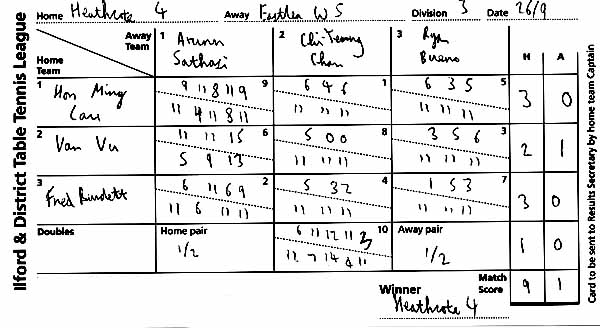 Home Heathcote 4 Away Eastler W S Division 3 Date 26/9
Ilford & District Table Tennis League
Away Team
Home Team
1 Arunn Sathasi
2 Chi-Teung Chan
3 Ryan Bueno
H A
1 Hon Ming Lau
9 11 8 11 9 9
11 4 11 8 11
6 4 6 1
11 11 11
6 3 5 5
11 11 11
3 0
2 Van Vu
11 11 15 6
5 9 13
5 0 0 8
11 11 11
3 5 6 3
11 11 11
2 1
3 Fred Burdett
6 11 6 9 2
11 6 11 11
5 3 2 4
11 11 11
1 5 3 7
11 11 11
3 0
Doubles
Home pair
1/2
6 11 12 11 3 10
11 7 14 4 11
Away pair
1/2
1 0
Winner
Heathcote 4
Match Score
9 1
Card to be sent to Results Secretary by home team Captain